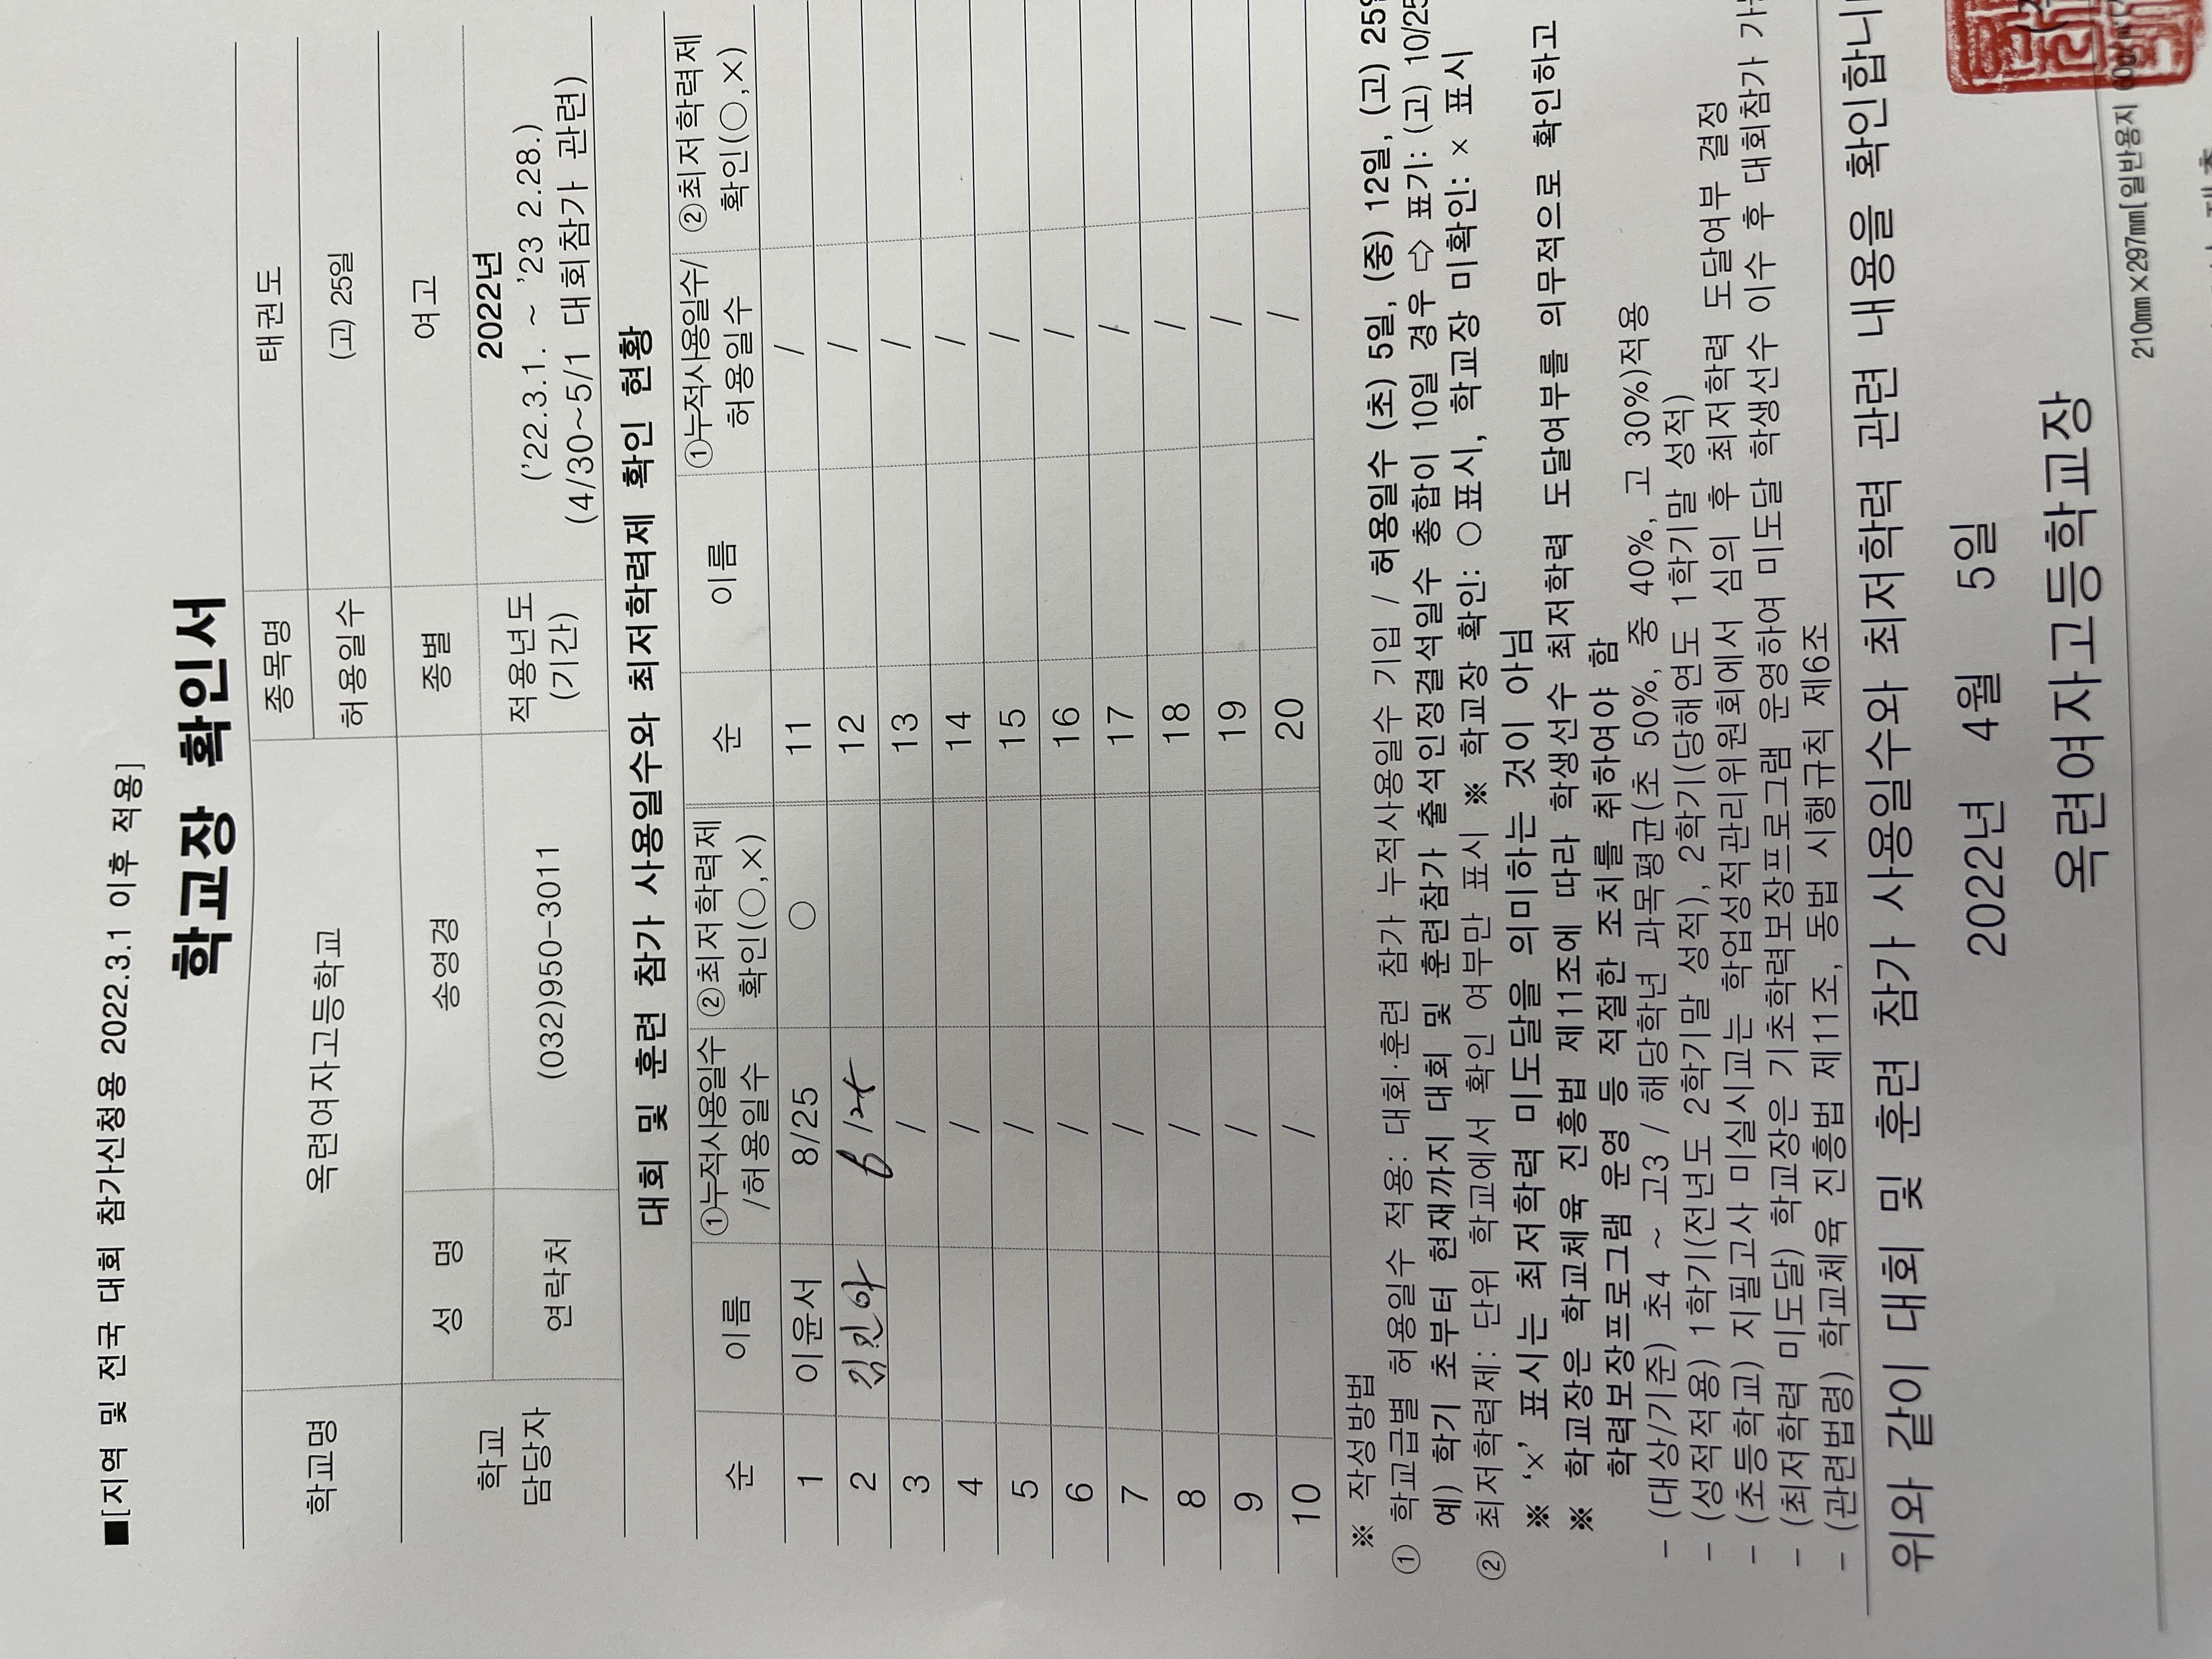 ■[지역 및 전국 대회 참가신청용 2022.3.1 이후 적용]
학교장 확인서
학교명 옥련여자고등학교 종목명 태권도
허용일수 (고) 25일
학교 담당자 성 명 송영경 종별 여고
연락처 (032)950-3011 적용년도 (기간) 2022년
('22.3.1. ~ '23 2.28.)
(4/30~5/1 대회참가 관련)
대회 및 훈련 참가 사용일수와 최저학력제 확인 현황
순 이름 ①누적사용일수 /허용일수 ②최저학력제 확인(○,×) 순 이름 ①누적사용일수/ 허용일수 ②최저학력제 확인(○,×)
1 이윤서 8/25 ○ 11 /
2 김진아 12 /
3 / 13 /
4 / 14 /
5 / 15 /
6 / 16 /
7 / 17 /
8 / 18 /
9 / 19 /
10 / 20 /
※ 작성방법
① 학교급별 허용일수 적용: 대회·훈련 참가 누적사용일수 기입 / 허용일수 (초) 5일, (중) 12일, (고) 25일
예) 학기 초부터 현재까지 대회 및 훈련참가 출석인정결석일수 총합이 10일 경우 ⇨ 표기: (고) 10/25
② 최저학력제: 단위 학교에서 확인 여부만 표시 ※ 학교장 확인: ○표시, 학교장 미확인: × 표시
※ '×' 표시는 최저학력 미도달을 의미하는 것이 아님
※ 학교장은 학교체육 진흥법 제11조에 따라 학생선수 최저학력 도달여부를 의무적으로 확인하고
학력보장프로그램 운영 등 적절한 조치를 취하여야 함
- (대상/기준) 초4 ~ 고3 / 해당학년 과목평균(초 50%, 중 40%, 고 30%)적용
- (성적적용) 1학기(전년도 2학기말 성적), 2학기(당해연도 1학기말 성적)
- (초등학교) 지필고사 미실시교는 학업성적관리위원회에서 심의 후 최저학력 도달여부 결정
- (최저학력 미도달) 학교장은 기초학력보장프로그램 운영하여 미도달 학생선수 이수 후 대회참가
- (관련법령) 학교체육 진흥법 제11조, 동법 시행규칙 제6조
위와 같이 대회 및 훈련 참가 사용일수와 최저학력 관련 내용을 확인합니
2022년 4월 5일
옥련여자고등학교장
210㎜×297㎜[일반용지